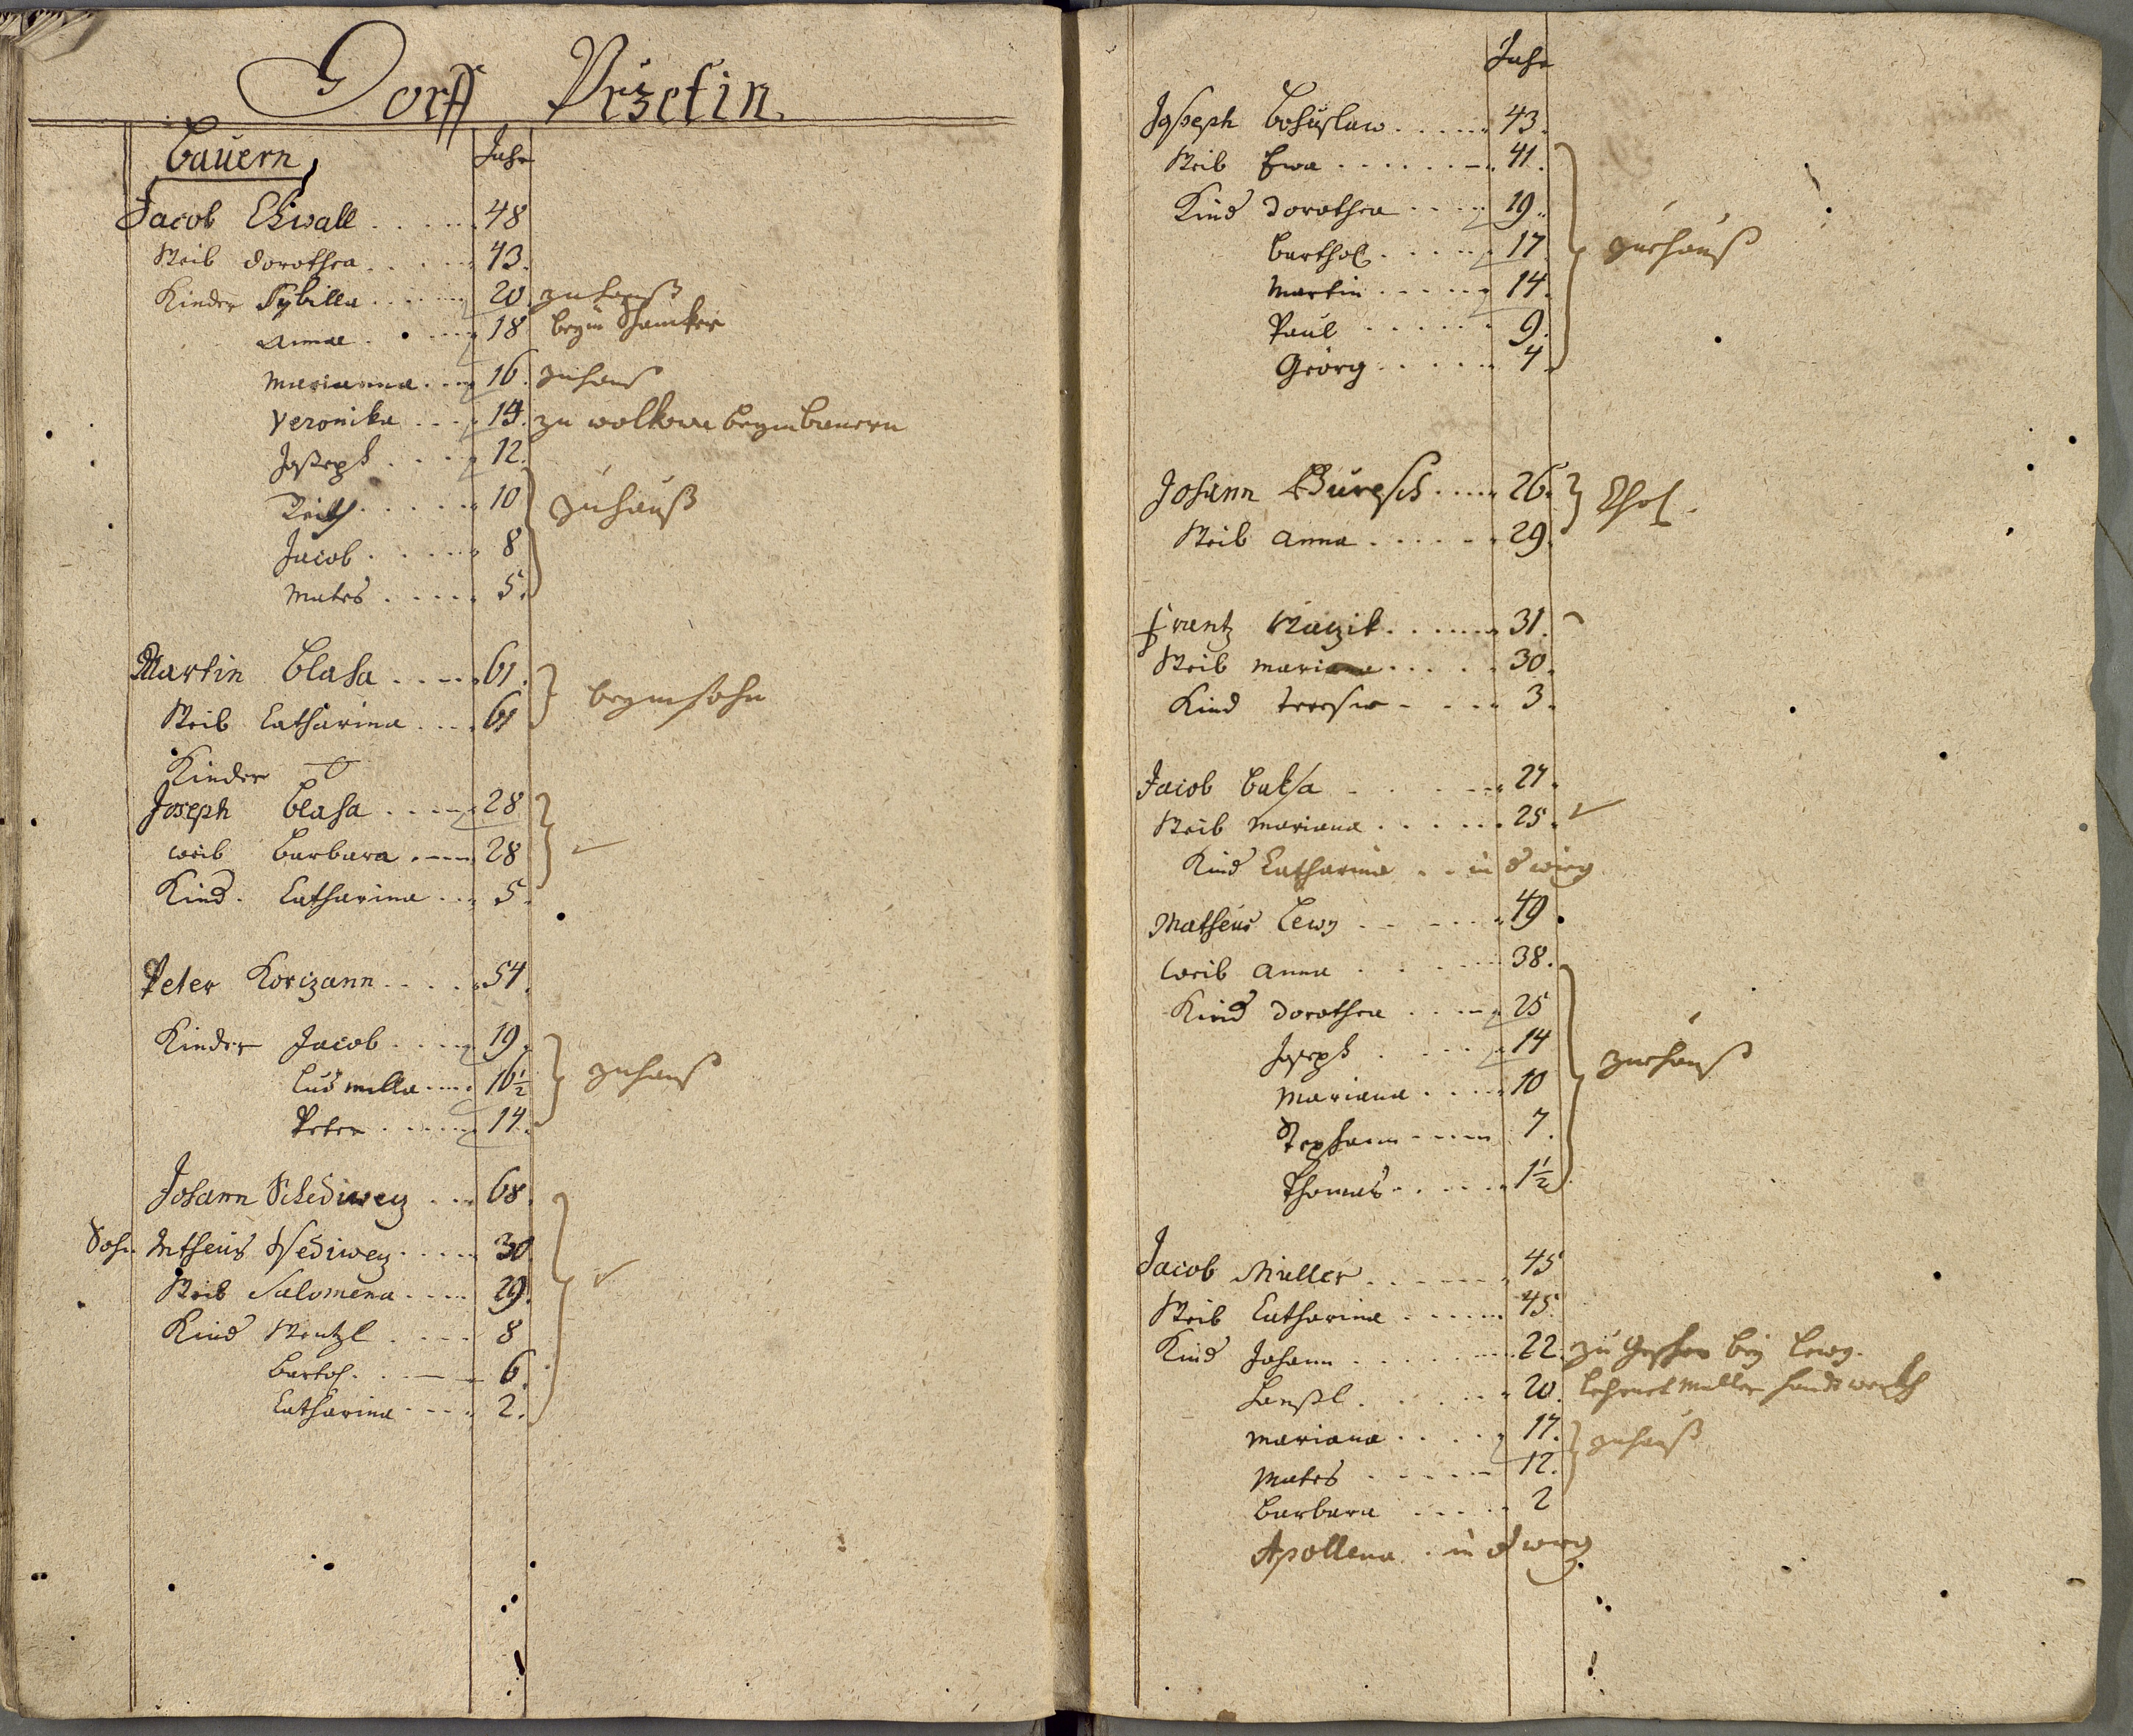 Dorff Przetin
Bauern Jahr
Jacob Chwall 48
Weib Dorothea 43.
Kinder Sybilla 20. zu hauß
Annae 18 beym Schancker
Marianna 16. zuhauß
Veronika 14. zu wolkow beym bauern
Joseph 12.
Veith 10 zuhauß
Jacob 8
Mates 5.
Martin Blaha 61.
Weib Catharina 61
beym sohn
Kinder
Joseph Blaha 28
weib Barbara 28
Kind. Catharina 5.
Peter Korizann 54.
Kinder Jacob 19.
Ludmilla 16½ zuhauß
Peter 14.
Johann Schediwey 68.
Sohn Mtheus Schediwey 30
Weib Salomena 29.
Kind Wentzl 8
Bartol. 6.
Catharina 2.
Jahr
Joseph Bohuslaw 43.
Weib Ewa 41.
Kind Dorothea 19.
Barthol. 17 zuhauß
Martin 14.
Paul 9.
Georg 4
Johann Buresch 26.
Weib Anna 29.
Frantz 31.
Weib Mariana 30.
Kind Teresia 3.
Jacob Baksa 27.
Weib Mariana 25.
Kind Catharina in d wieg
Matheus Lewy 49.
Weib Anna 38.
Kind Dorothea 25
Joseph 14
zuhauß
Mariana 10
Stephann 7.
Thomas 1½
Jacob Müller 45
Weib Catharina 45.
Kind Johann 22. zu bey Lewy.
Hanßl 20. lehrnet Müller handtwerkh
Mariana 17. zuhauß
Mates 12.
Barbara 2
Apollena in d wieg